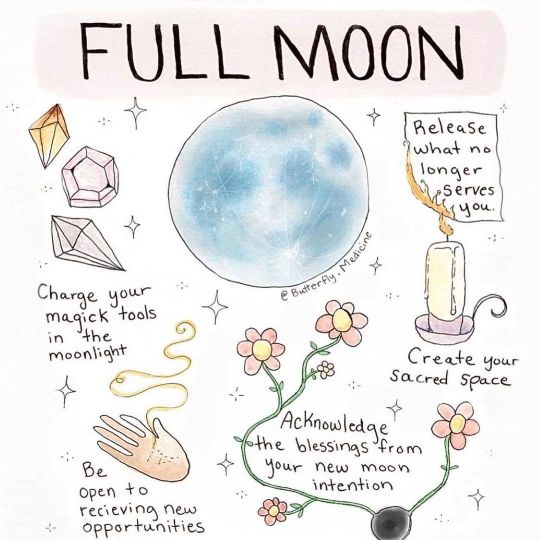 FULL MOON
Release
what no
longer
serves
you.
@Butterfly.Medicine
Charge your
magick tools
in the
moonlight
Create your
sacred space
Acknowledge
the blessings from
your new moon
intention
Be
open to
recieving new
opportunities